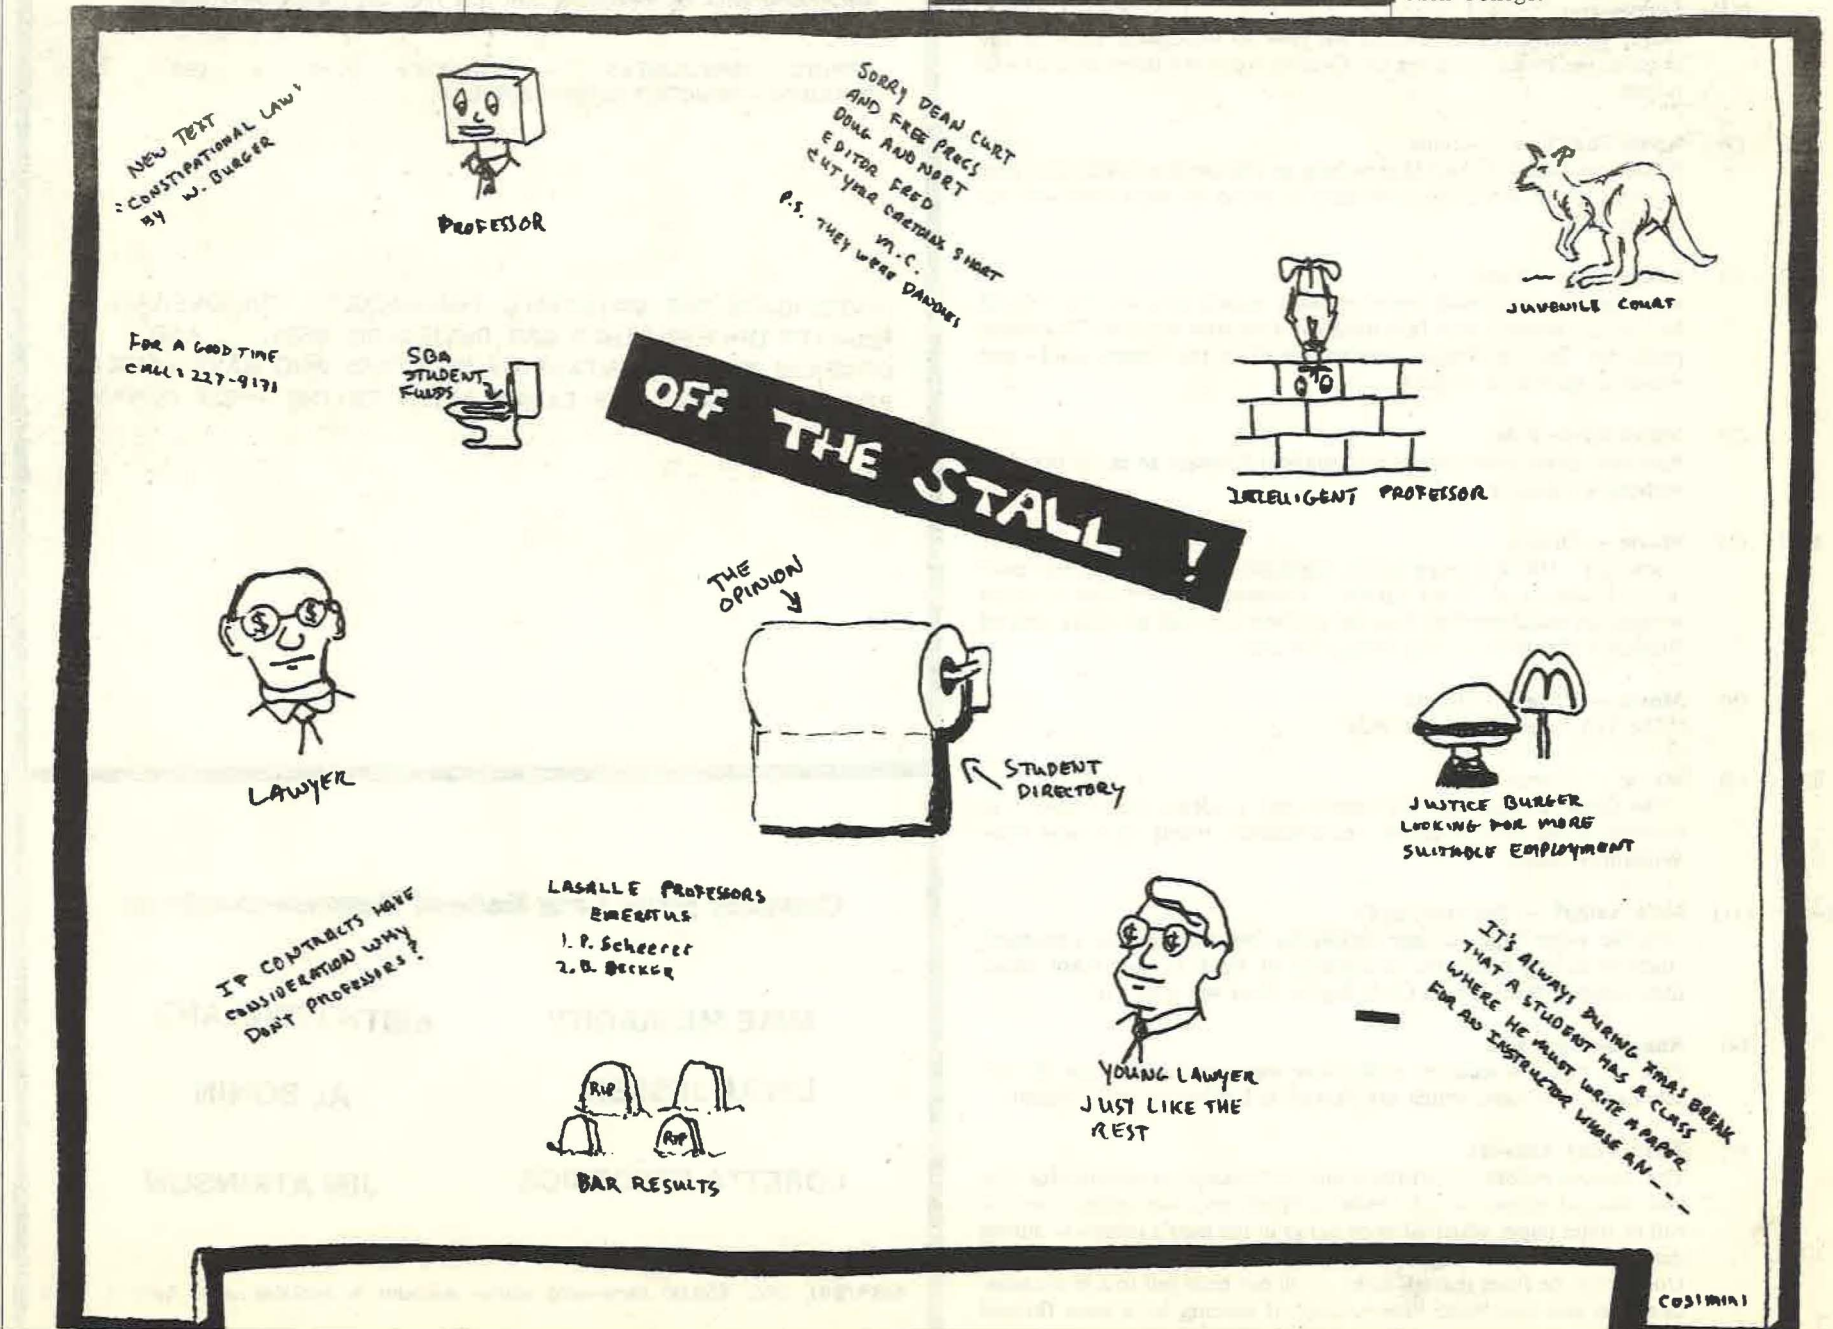 NEW TEXT
"CONSTIPATIONAL LAW"
BY W. BURGER
PROFESSOR
SORRY DEAN CURT
AND FREE PROCS
DOUG AND MORT
EDITOR FRED
CUT YOUR CARTOONS SHORT
M.C.
P.S. THEY WERE DANDIES
JUVENILE COURT
FOR A GOOD TIME
CALL: 227-9171
SBA
STUDENT
FUNDS
OFF THE STALL!
INTELLIGENT PROFESSOR
$ $
LAWYER
THE
OPINION
STUDENT
DIRECTORY
JUSTICE BURGER
LOOKING FOR MORE
SUITABLE EMPLOYMENT
IF CONTRACTS HAVE
CONSIDERATION WHY
DON'T PROFESSORS?
LASALLE PROFESSORS
EMERATUS
1. P. Scheerer
2. B. BECKER
RIP
RIP
BAR RESULTS
¢ ¢
YOUNG LAWYER
JUST LIKE THE
REST
IT'S ALWAYS DURING XMAS BREAK
THAT A STUDENT HAS A CLASS
WHERE HE MUST WRITE A PAPER
FOR AN INSTRUCTOR WHOSE AN ----
COSIMINI